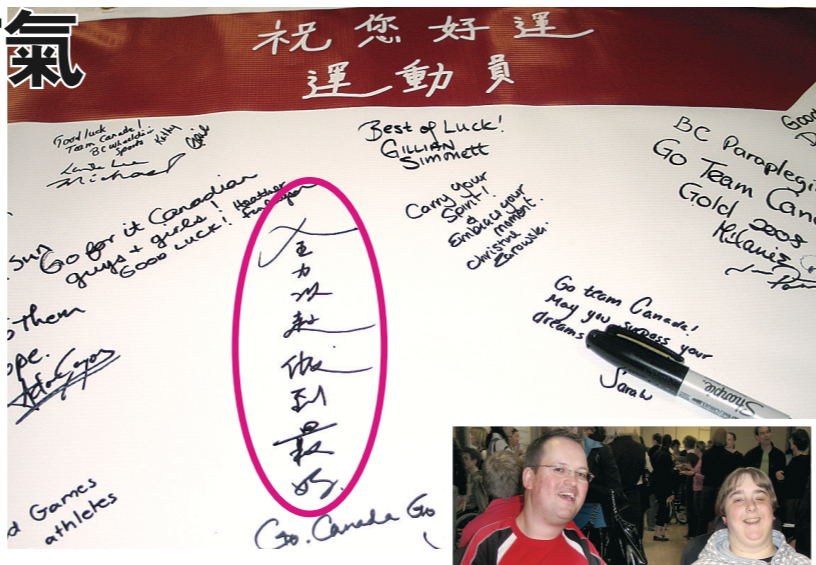 氣
祝您好運
運動員
Good luck
Team Canada!
BC Wheelchair
Sports
Kelly
Michael
Best of Luck!
GILLIAN
Simmett
BC Paraplegi
Go Team Can
Gold 2008
Milanie
Go for it Canadian
guys + girls!
GOOD LUCK!
Heather
Carry your
Spirit!
&
Embrace your
moment.
Christine
全力以赴做到最好
them
ope.
Go team Canada!
May you surpass your
dreams
Sarah
Sharpie
d Games
athletes
Go Canada Go